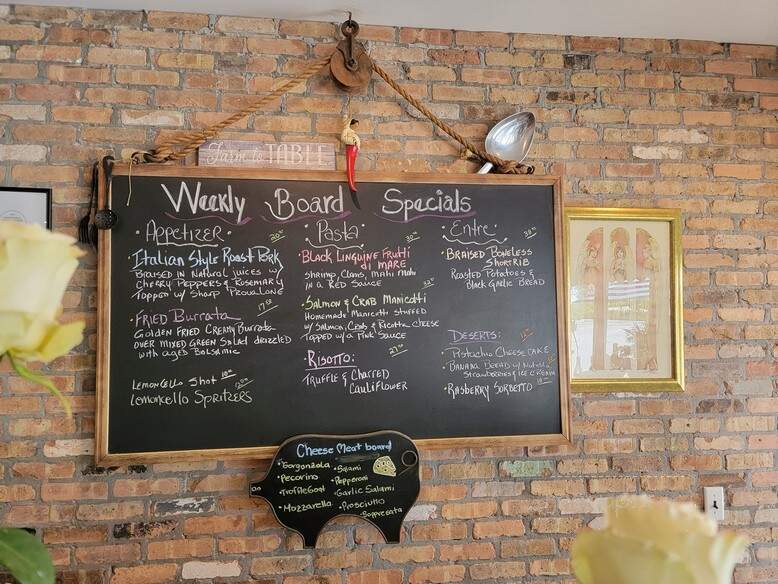 Farm to TABLE
Weekly Board Specials
Appetizer
Italian Style Roast Pork 20⁰⁰
BRAISED IN Natural juices w/
CHERRY PEPPERS & ROSEMARY
TOPPED w/ SHARP PROVALONE
FRIED Burrata 17⁰⁰
Golden FRIED CREAMY Burrata
OVER MIXED GREEN Salad drizzled
with aged Balsamic
LEMONCELLO Shot 10⁰⁰
Lemoncello SPRITZERS 12⁰⁰
Pasta
BLACK LINGUINE FRUTTI 30⁰⁰
di MARE
SHRIMP, Clams, MAHI MAHI
IN a RED SAUCE
Salmon & CRAB Manicotti 32⁰⁰
HOMEMADE Manicotti STUFFED
w/ Salmon, Crab & Ricotta CHEESE
TOPPED w/ a Pink SAUCE
RISOTTO: 27⁰⁰
TRUFFLE & CHARRED
CAULIFLOWER
Entre
BRAISED BONELESS 38⁰⁰
SHORT RIB
ROASTED POTATOES &
BLACK GARLIC BREAD
DESERTS:
PISTACHIO CHEESE CAKE
BANANA BREAD w/ Nutella
STRAWBERRIES & ICE CREAM
RASBERRY SORBETTO
Cheese Meat board
•Gorgonzola
•Pecorino
•TruffleGoat
•Mozzarella
•Salami
•Pepperoni
•Garlic Salami
•Prosciutto
•Soppresata